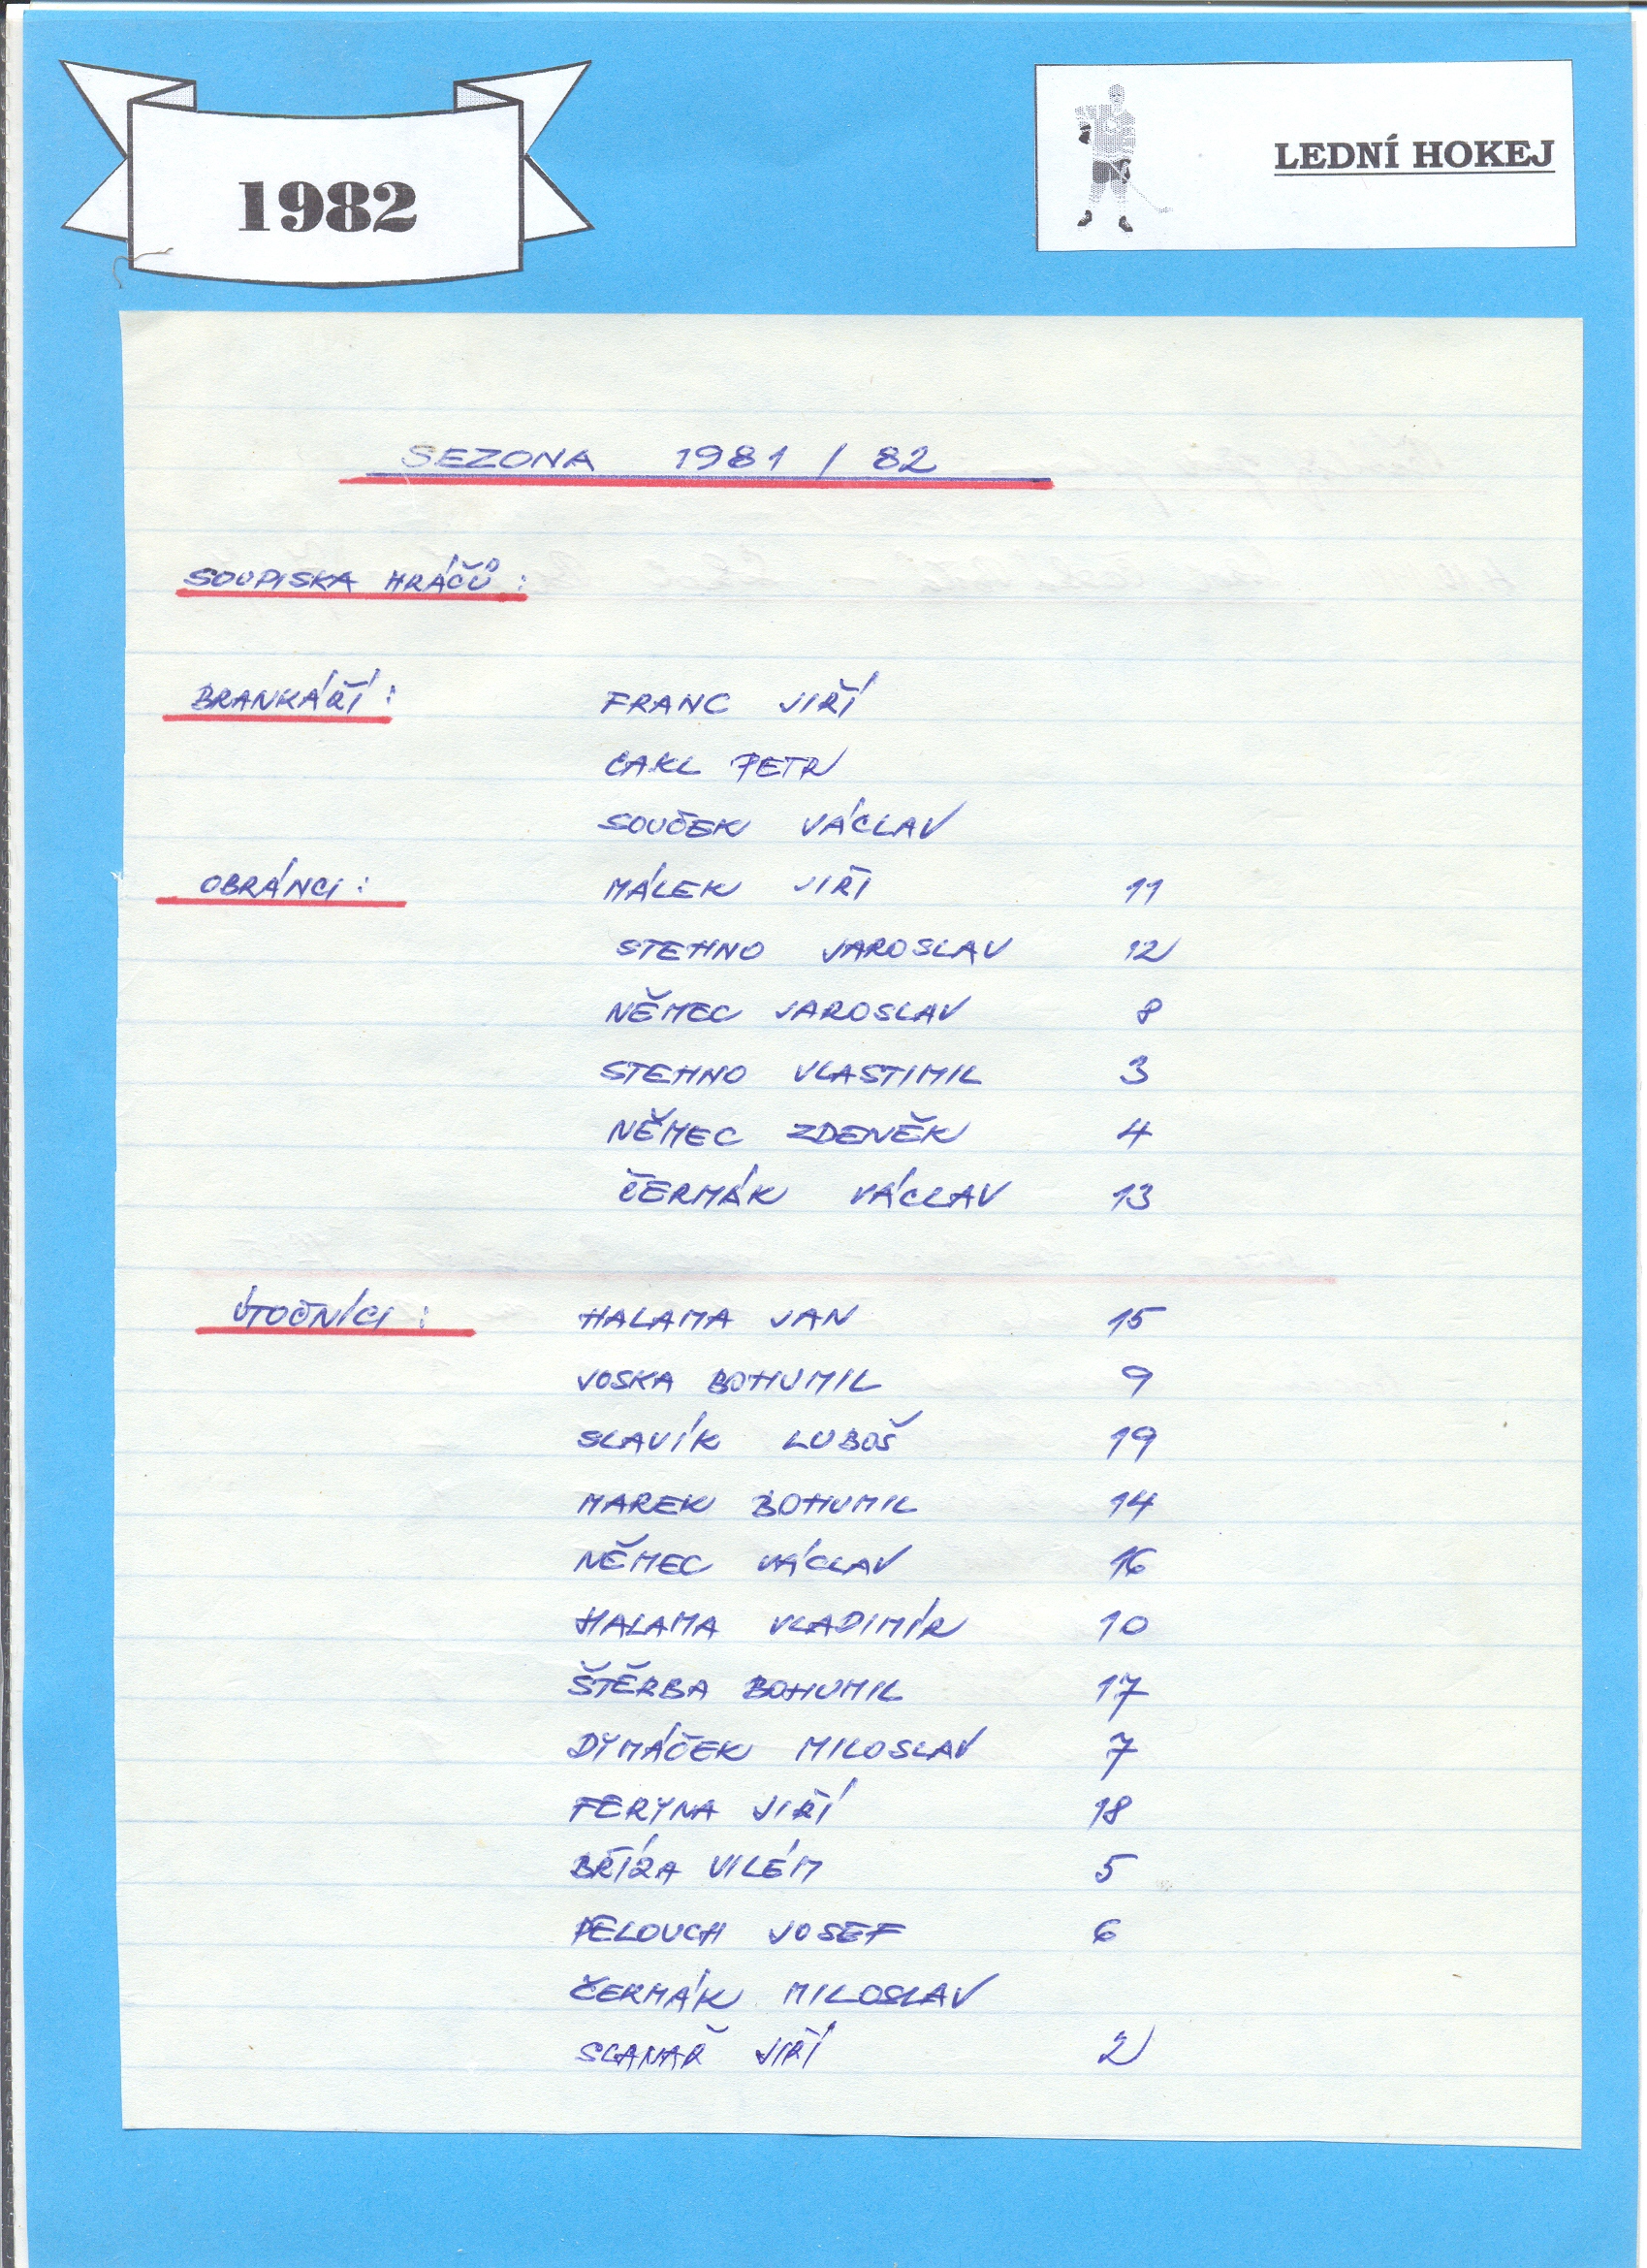 1982
LEDNÍ HOKEJ
SEZONA 1981 / 82
SOUPISKA HRÁČŮ:
BRANKÁŘÍ: FRANC JIŘÍ
CAKL PETR
SOUČEK VÁCLAV
OBRÁNCI: MÁLEK JIŘÍ 11
STEHNO JAROSLAV 12
NĚMEC JAROSLAV 8
STEHNO VLASTIMIL 3
NĚMEC ZDENĚK 4
ČERMÁK VÁCLAV 13
ÚTOČNÍCI: HALAMA JAN 15
VOSKA BOHUMIL 9
SLAVÍK LUBOŠ 19
MAREK BOHUMIL 14
NĚMEC VÁCLAV 16
HALAMA VLADIMÍR 10
ŠTĚRBA BOHUMIL 17
DYMÁČEK MILOSLAV 7
FERYNA JIŘÍ 18
BŘÍZA VILÉM 5
PELOUCH JOSEF 6
ČERMÁK MILOSLAV
JIŘÍ 2